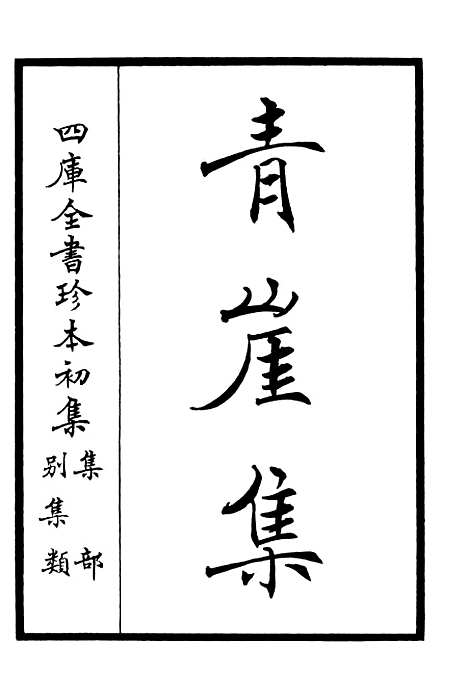 青崖集
四庫全書珍本初集
集部
別集類